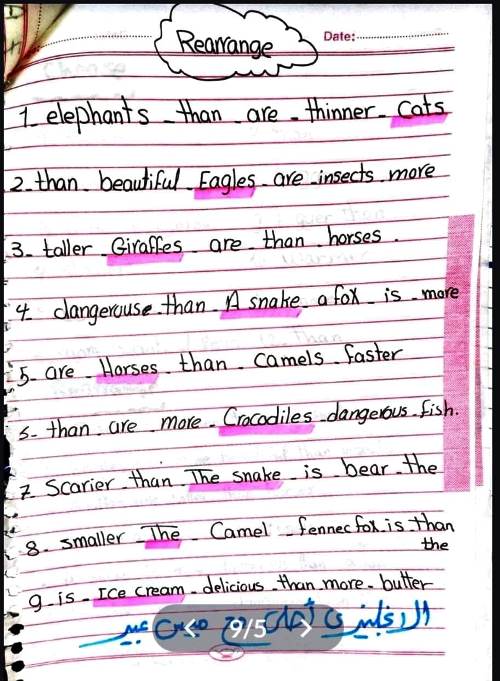 Rearrange
Date:
1- elephants - than - are - thinner - Cats
2- than - beautiful - Eagles - are - insects - more
3- taller - Giraffes - are - than - horses.
4- dangerouse - than - A snake - a fox - is - more
5- are - Horses - than - camels - faster
6- than - are - more - Crocodiles - dangerous - fish.
7- Scarier - than - The snake - is - bear - the
8- smaller - The - Camel - fennec fox - is - than
the
9- is - Ice cream - delicious - than - more - butter
الانجليزي أحلى مع ميس عبير
9/5